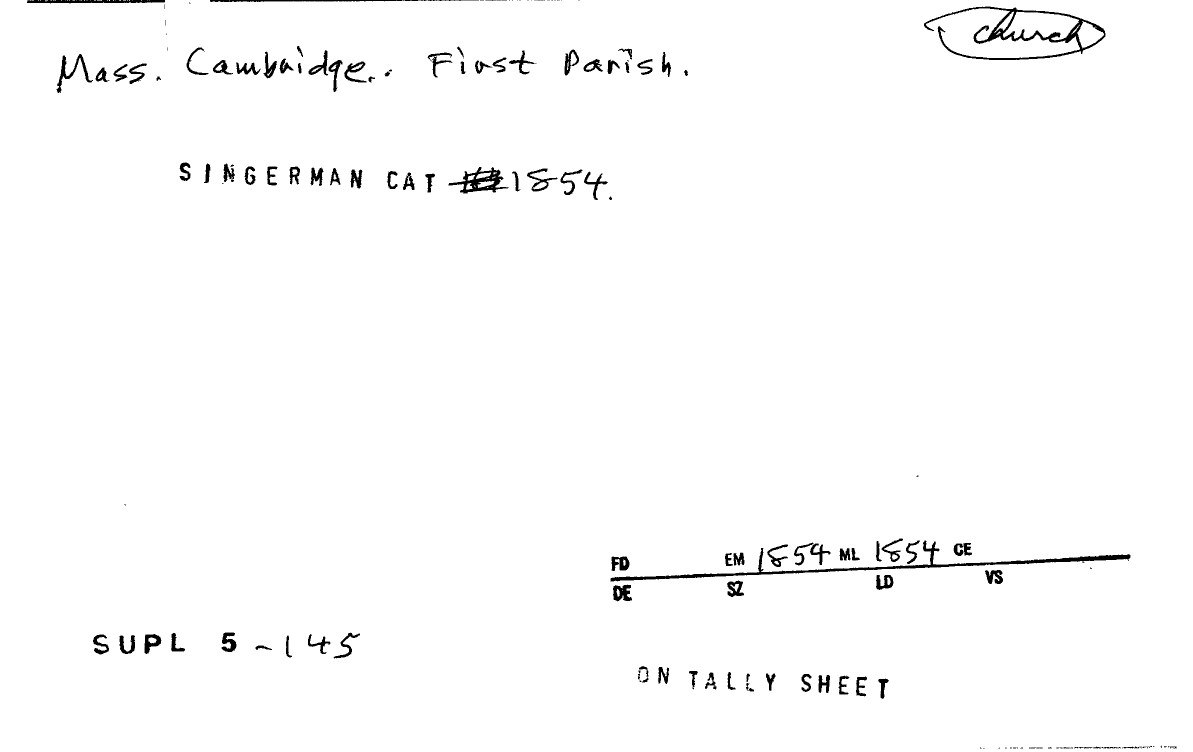 church
Mass. Cambridge.. First Parish.
SINGERMAN CAT 1854.
FD EM 1854 ML 1854 CE
DE SZ LD VS
SUPL 5-145
ON TALLY SHEET